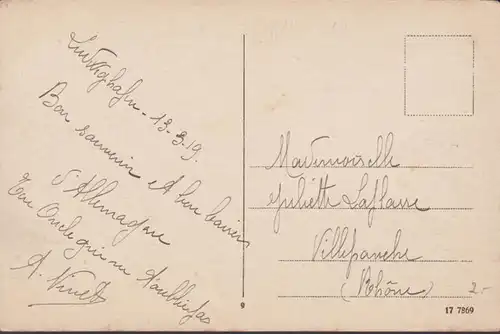 Ludwighafen - 13-3-19.
Bon souvenir et bon baiser
d'Allemagne
Ton Oncle qui ne t'oublie pas
A. Vinet
Mademoiselle
Juliette
Villefranche
(Rhône)
2.-
9
17 7869